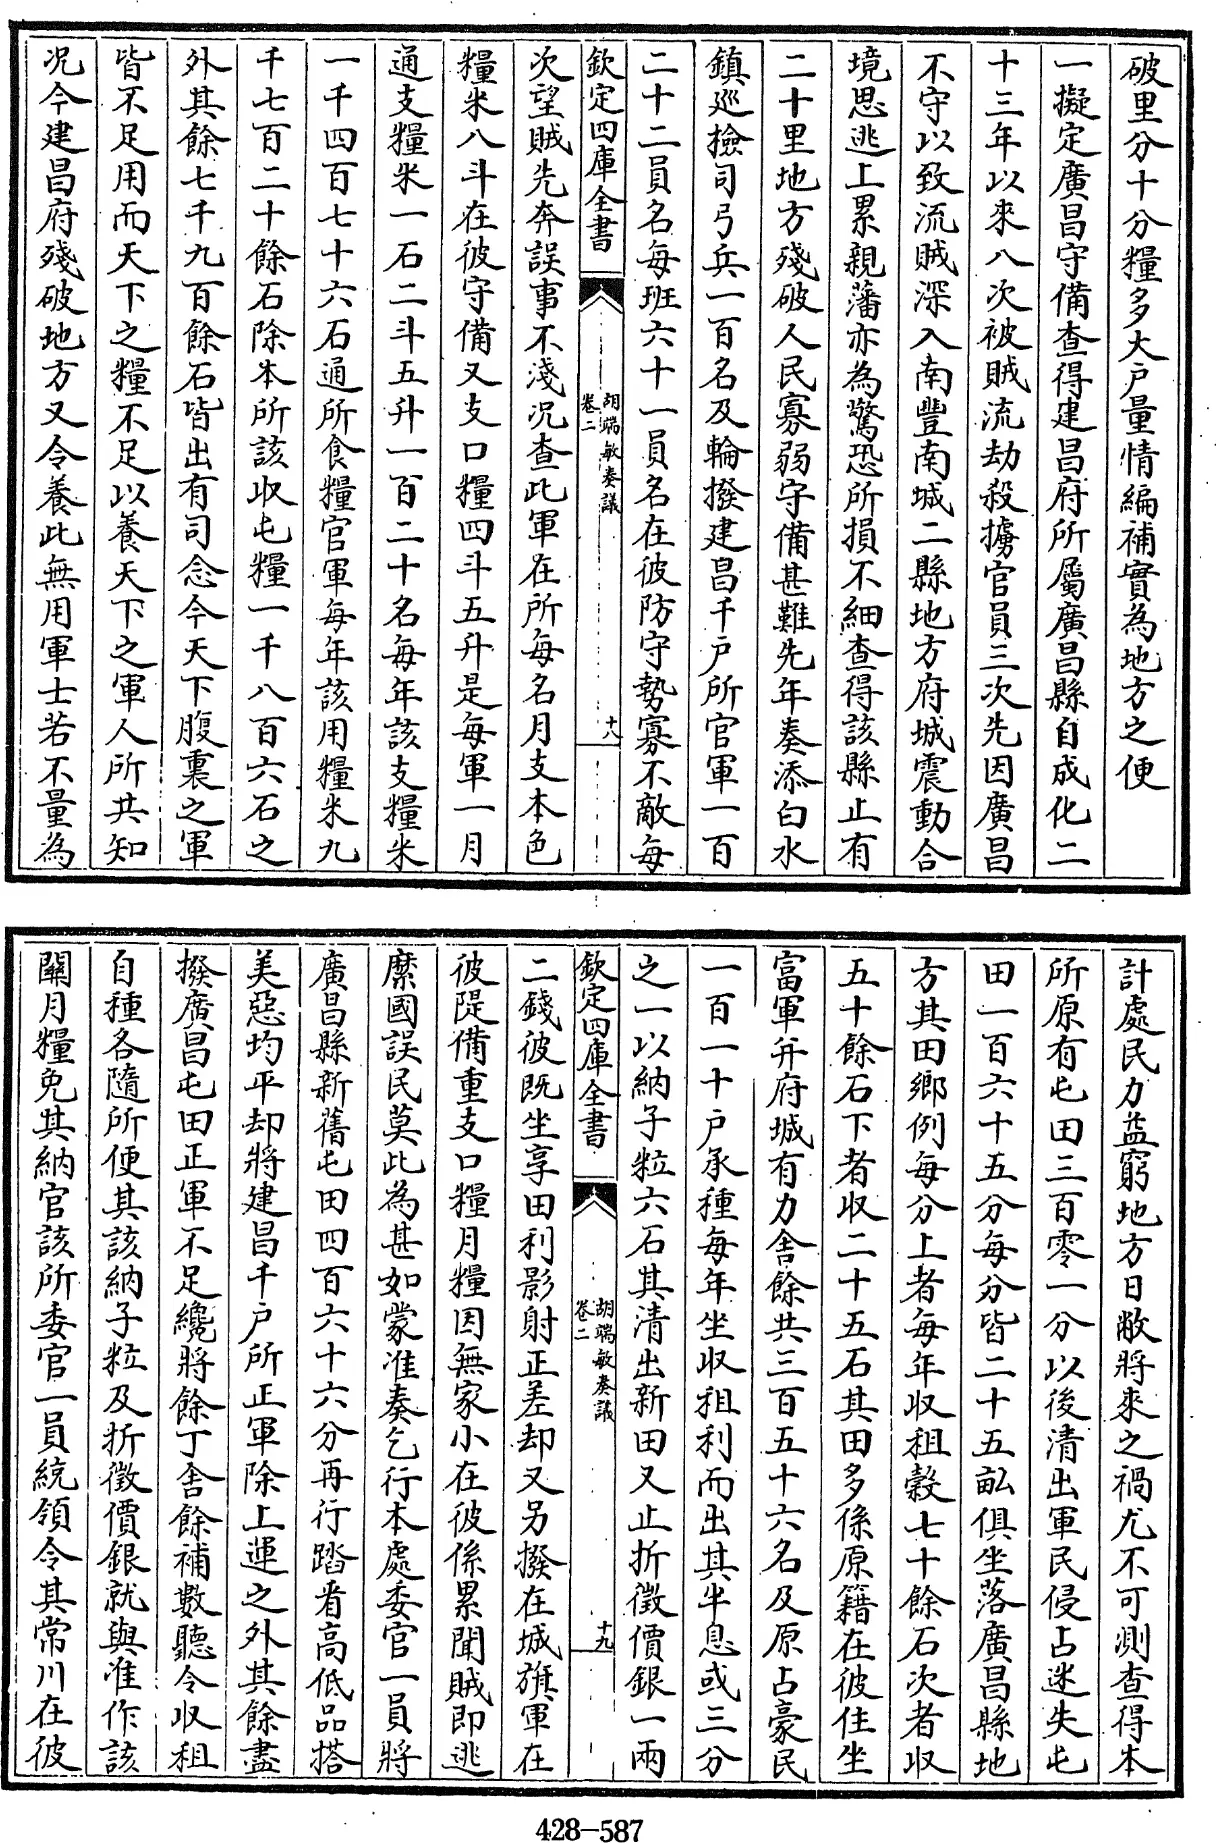 破里分十分糧多大户量情編補實為地方之便
一擬定廣昌守備查得建昌府所屬廣昌縣自成化二
十三年以來八次被賊流劫殺擄官員三次先因廣昌
不守以致流賊深入南豐南城二縣地方府城震動合
境思逃上累親藩亦為驚恐所損不細查得該縣止有
二十里地方殘破人民寡弱守備甚難先年奏添白水
鎮巡檢司弓兵一百名及輪撥建昌千户所官軍一百
二十二員名每班六十一員名在彼防守勢寡不敵每
欽定四庫全書
胡端敏奏議
卷二
十八
次望賊先奔誤事不淺况查此軍在所每名月支本色
糧米八斗在彼守備又支口糧四斗五升是每軍一月
通支糧米一石二斗五升一百二十名每年該支糧米
一千四百七十六石通所食糧官軍每年該用糧米九
千七百二十餘石除本所該收屯糧一千八百六石之
外其餘七千九百餘石皆出有司念今天下腹裏之軍
皆不足用而天下之糧不足以養天下之軍人所共知
况今建昌府殘破地方又令養此無用軍士若不量為
計處民力益窮地方日敝將來之禍尤不可測查得本
所原有屯田三百零一分以後清出軍民侵占迷失屯
田一百六十五分每分皆二十五畝俱坐落廣昌縣地
方其田鄉例每分上者每年收租穀七十餘石次者收
五十餘石下者收二十五石其田多係原籍在彼住坐
富軍并府城有力舍餘共三百五十六名及原占豪民
一百一十户承種每年坐收租利而出其半息或三分
之一以納子粒六石其清出新田又止折徵價銀一兩
欽定四庫全書
胡端敏奏議
卷二
十九
二錢彼既坐享田利影射正差却又另撥在城旗軍在
彼隄備重支口糧月糧因無家小在彼係累聞賊即逃
縻國誤民莫此為甚如蒙准奏乞行本處委官一員將
廣昌縣新舊屯田四百六十六分再行踏看高低品搭
美惡均平却將建昌千户所正軍除上運之外其餘盡
撥廣昌屯田正軍不足纔將餘丁舍餘補數聽令收租
自種各隨所便其該納子粒及折徵價銀就與准作該
關月糧免其納官該所委官一員統領令其常川在彼
428-587